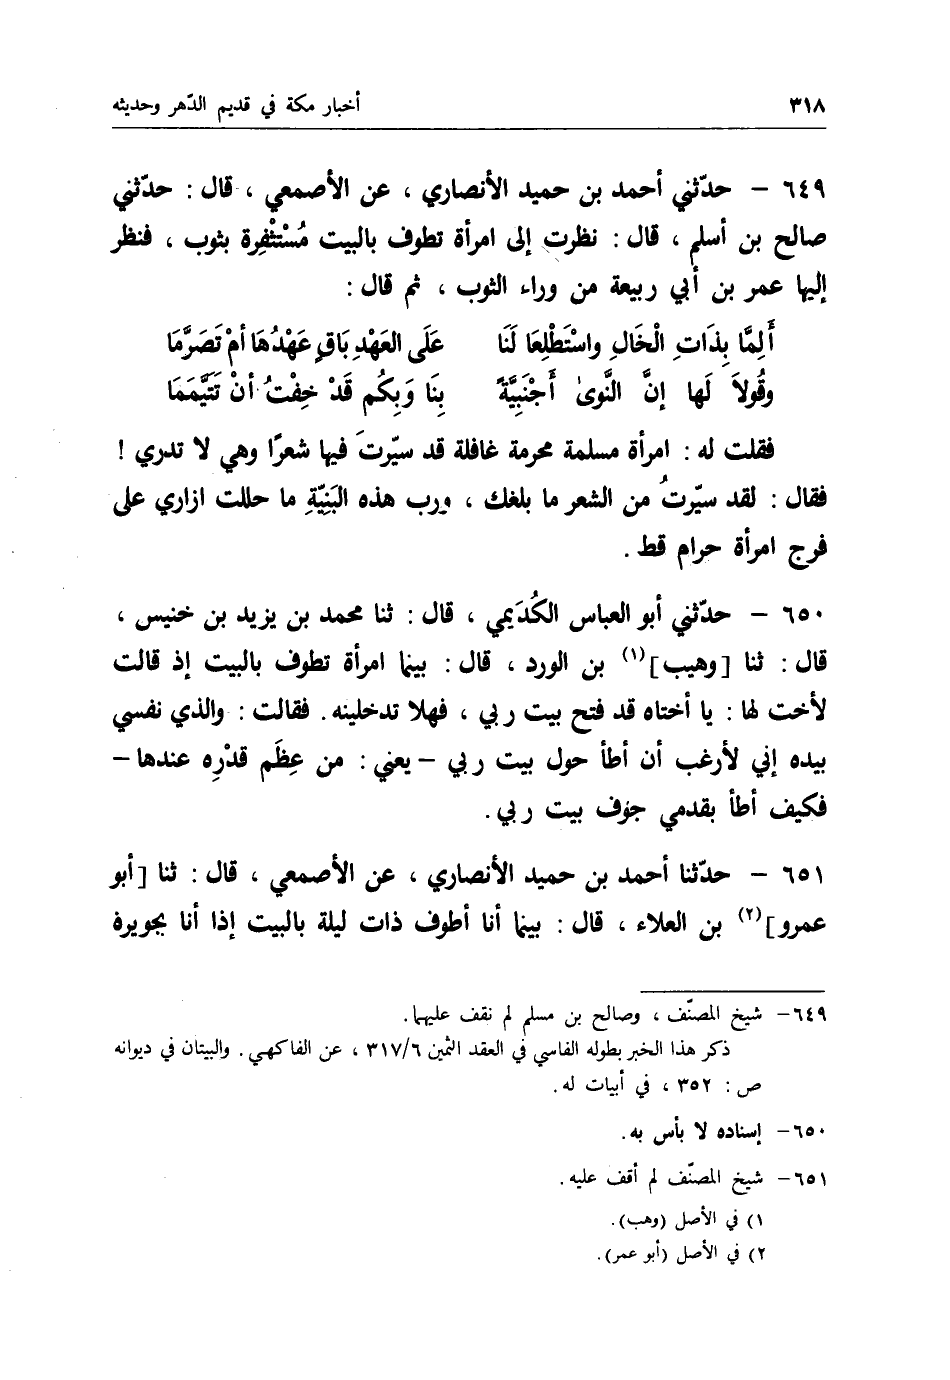 ٣١٨ أخبار مكة في قديم الدّهر وحديثه
٦٤٩ – حدّثني أحمد بن حميد الأنصاري ، عن الأصمعي ، قال : حدّثني
صالح بن أسلم ، قال : نظرت إلى امرأة تطوف بالبيت مُسْتَثْفِرة بثوب ، فنظر
إليها عمر بن أبي ربيعة من وراء الثوب ، ثم قال :
أَلِمَّا بِذَاتِ الْخَالِ واسْتَطْلِعَا لَنَا عَلَى العَهْدِ بَاقٍ عَهْدُهَا أمْ تَصَرَّمَا
وقُولاَ لَها إنَّ النَّوىٰ أَجْنَبِيَّةً بِنَا وَبِكُم قَدْ خِفْتُ أنْ تَتَيَّمَمَا
فقلت له : امرأة مسلمة محرمة غافلة قد سيّرتَ فيها شعرًا وهي لا تدري !
فقال : لقد سيّرتُ من الشعر ما بلغك ، ورب هذه البَنِيّةِ ما حللت ازاري على
فرج امرأة حرام قط .
٦٥٠ – حدّثني أبو العباس الكُدَيمي ، قال : ثنا محمد بن يزيد بن خنيس ،
قال : ثنا [وهيب](١) بن الورد ، قال : بينما امرأة تطوف بالبيت إذ قالت
لأخت لها : يا أختاه قد فتح بيت ربي ، فهلا تدخلينه . فقالت : والذي نفسي
بيده إني لأرغب أن أطأ حول بيت ربي – يعني : من عِظَم قدْرِه عندها –
فكيف أطأ بقدمي جوْف بيت ربي .
٦٥١ – حدّثنا أحمد بن حميد الأنصاري ، عن الأصمعي ، قال : ثنا [أبو
عمرو](٢) بن العلاء ، قال : بينما أنا أطوف ذات ليلة بالبيت إذا أنا بجويرة
٦٤٩– شيخ المصنّف ، وصالح بن مسلم لم نقف عليهما .
ذكر هذا الخبر بطوله الفاسي في العقد الثمين ٣١٧/٦ ، عن الفاكهي . والبيتان في ديوانه
ص : ٣٥٢ ، في أبيات له .
٦٥٠– إسناده لا بأس به .
٦٥١– شيخ المصنّف لم أقف عليه .
١) في الأصل (وهب) .
٢) في الأصل (أبو عمر) .